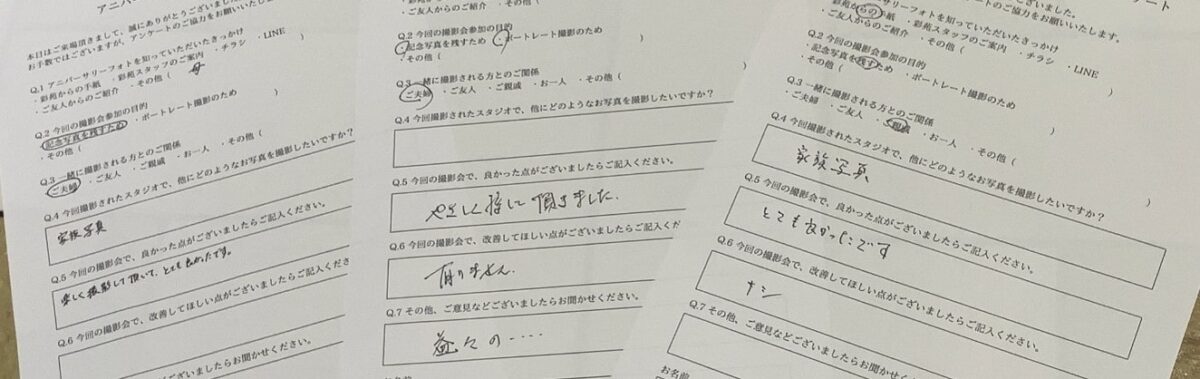 アニバーサリーフォ
本日はご来場頂きまして、誠にありがとうございまし
お手数ではございますが、アンケートのご協力をお願いいたしま
Q.1 アニバーサリーフォトを知っていただいたきっかけ
・彩苑からの手紙 ・彩苑スタッフのご案内 ・チラシ ・LINE
・ご友人からのご紹介 ・その他( 母
Q.2 今回の撮影会参加の目的
・記念写真を残すため ・ポートレート撮影のため
・その他(
Q.3 一緒に撮影される方とのご関係
・ご夫婦 ・ご友人 ・ご親戚 ・お一人 ・その他(
Q.4 今回撮影されたスタジオで、他にどのようなお写真を撮影したいですか?
家族写真
Q.5 今回の撮影会で、良かった点がございましたらご記入ください。
楽しく撮影して頂いて、とても良かったです。
Q.6 今回の撮影会で、改善してほしい点がございましたらご記入ください。
ございましたらお聞かせください。
・ご友人からのご紹介 ・その他(
Q.2 今回の撮影会参加の目的
・記念写真を残すため ・ポートレート撮影のため
・その他(
Q.3 一緒に撮影される方とのご関係
・ご夫婦 ・ご友人 ・ご親戚 ・お一人 ・その他(
Q.4 今回撮影されたスタジオで、他にどのようなお写真を撮影したいですか?
Q.5 今回の撮影会で、良かった点がございましたらご記入ください。
やさしく接して頂きました.
Q.6 今回の撮影会で、改善してほしい点がございましたらご記入ください。
有りません.
Q.7 その他、ご意見などございましたらお聞かせください。
益々の‥‥
お名前
ございました。
アンケートのご協力をお願いいたします。
を知っていただいたきっかけ
彩苑からの手紙 ・彩苑スタッフのご案内 ・チラシ ・LINE
・ご友人からのご紹介 ・その他(
Q.2 今回の撮影会参加の目的
・記念写真を残すため ・ポートレート撮影のため
・その他(
Q.3 一緒に撮影される方とのご関係
・ご夫婦 ・ご友人 ・ご親戚 ・お一人 ・その他(
Q.4 今回撮影されたスタジオで、他にどのようなお写真を撮影したいですか?
家族写真
Q.5 今回の撮影会で、良かった点がございましたらご記入ください。
とても良かったです
Q.6 今回の撮影会で、改善してほしい点がございましたらご記入ください。
ナシ
Q.7 その他、ご意見などございましたらお聞かせください。
お名前